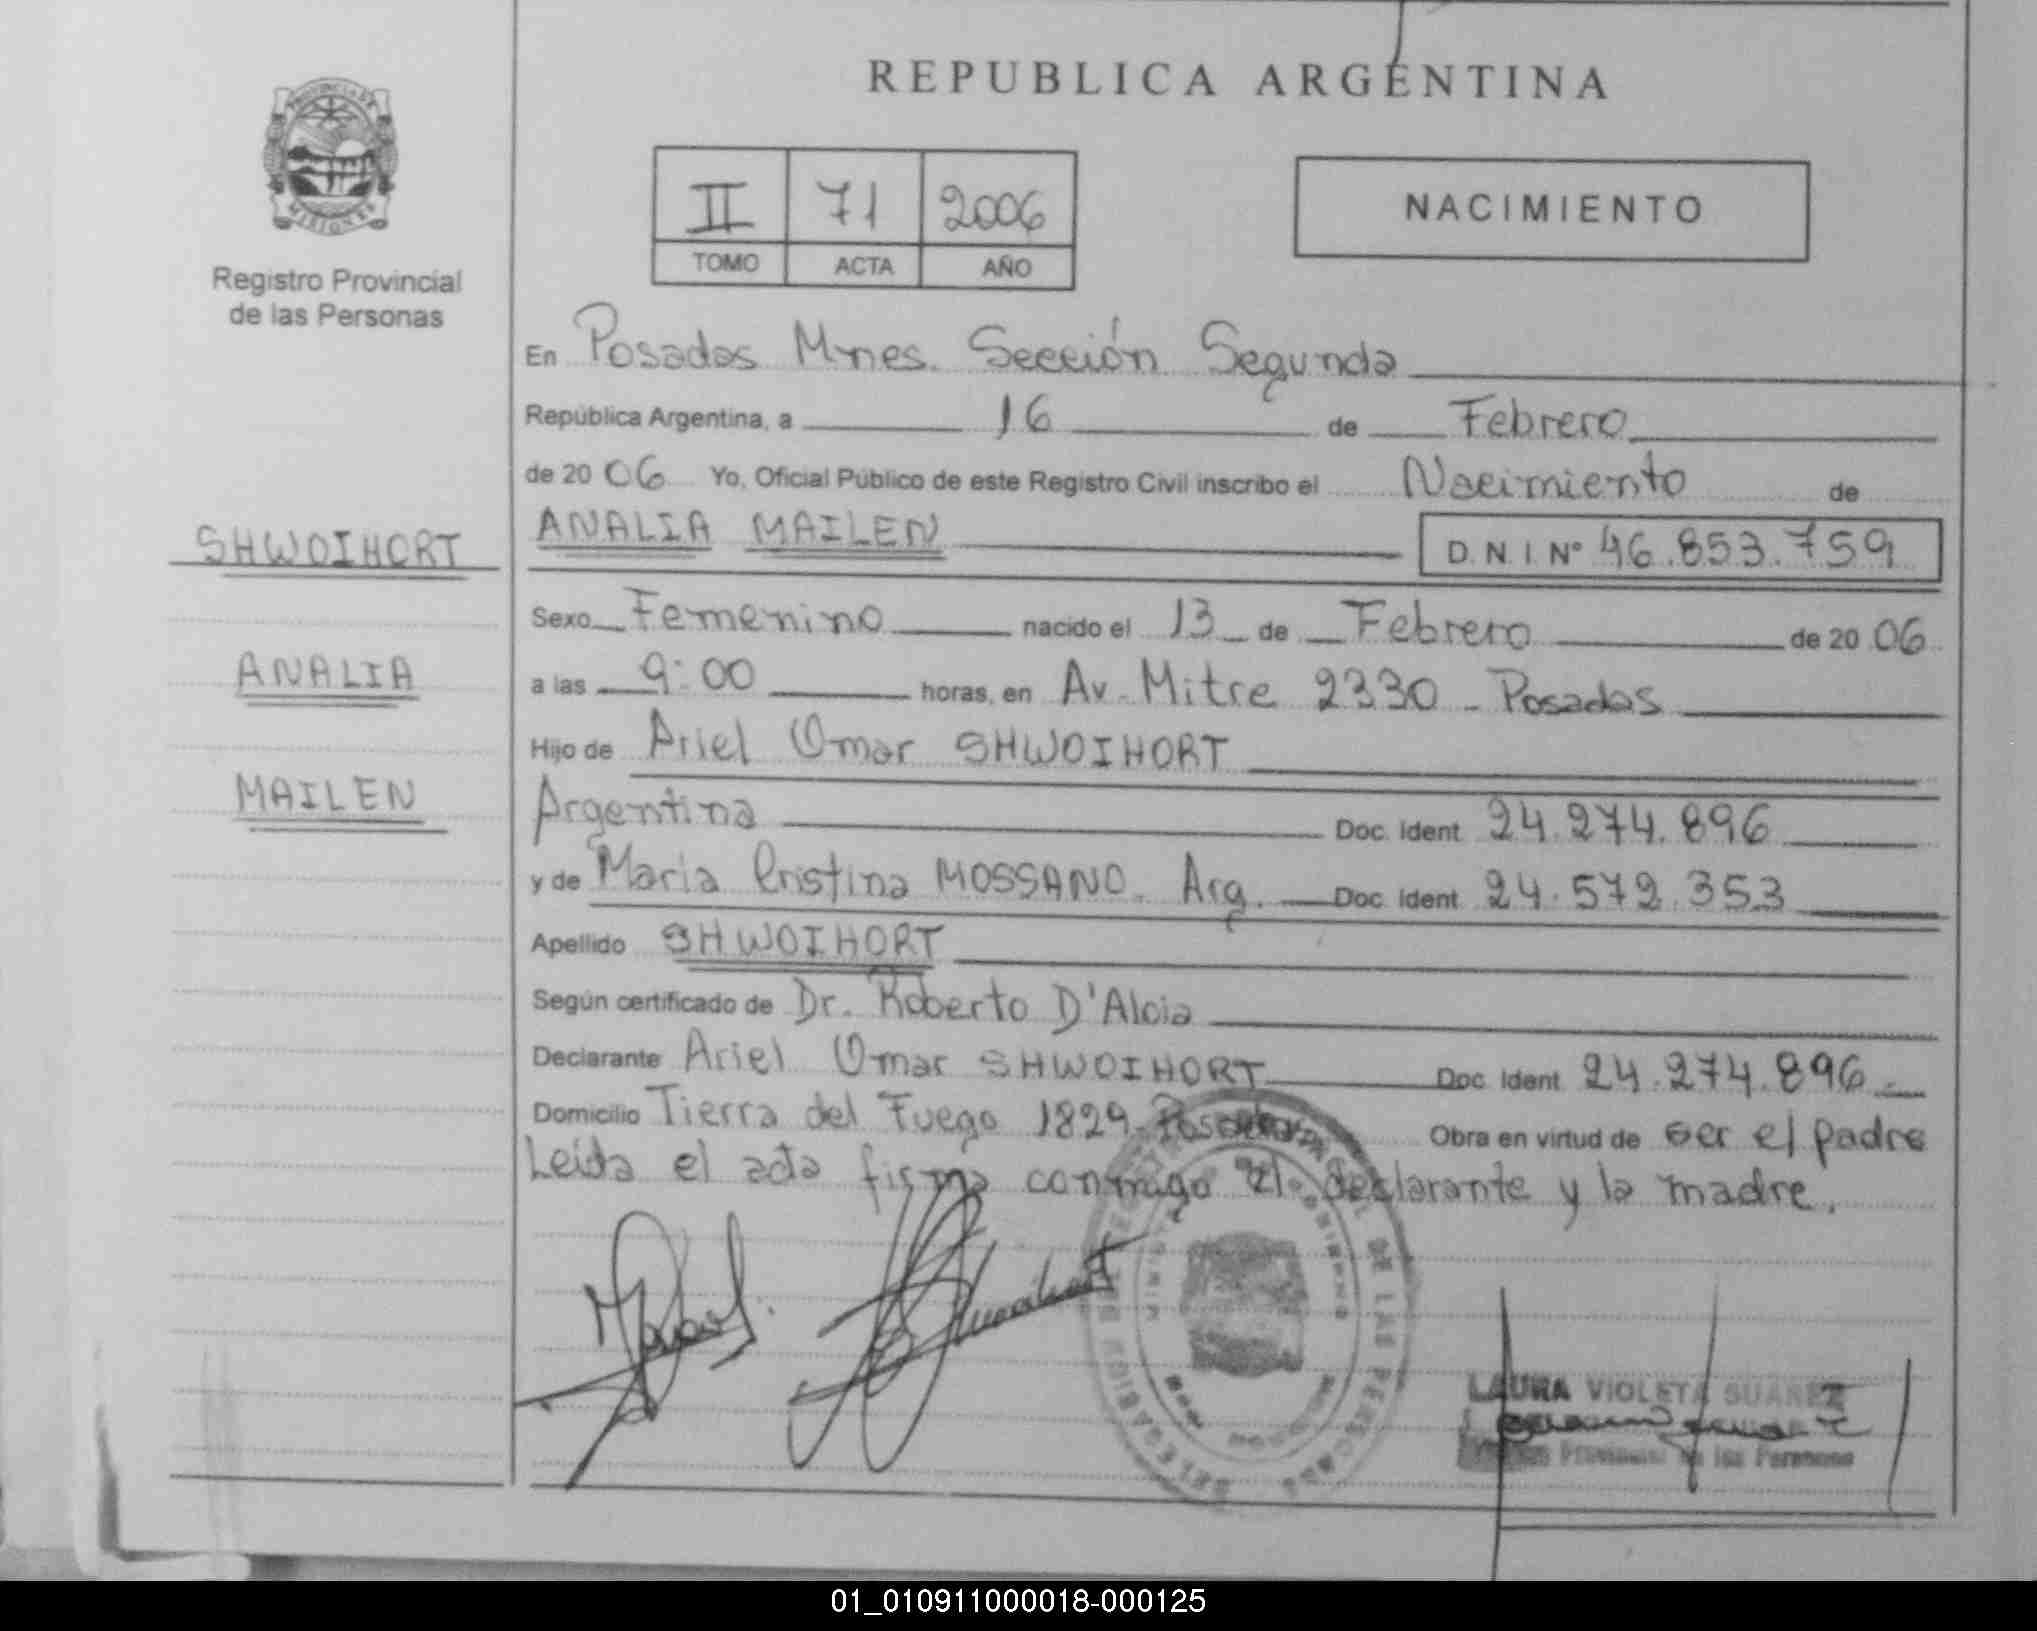 PROVINCIA DE
MISIONES
Registro Provincial
de las Personas
SHWOIHORT
ANALIA
MAILEN
REPUBLICA ARGENTINA
II 71 2006
TOMO ACTA AÑO
NACIMIENTO
En Posadas Mnes. Sección Segunda
República Argentina, a 16 de Febrero
de 2006 Yo, Oficial Público de este Registro Civil inscribo el Nacimiento de
ANALIA MAILEN D.N.I. Nº 46.853.759
Sexo Femenino nacido el 13 de Febrero de 2006
a las 9:00 horas, en Av. Mitre 2330 - Posadas
Hijo de Ariel Omar SHWOIHORT
Argentina Doc. Ident 24.274.896
y de Maria Cristina MOSSANO. Arg. Doc. Ident 24.572.353
Apellido SHWOIHORT
Según certificado de Dr. Roberto D'Aloia
Declarante Ariel Omar SHWOIHORT Doc. Ident 24.274.896.-
Domicilio Tierra del Fuego 1829 - Posadas Obra en virtud de ser el padre
Leída el acta firma conmigo el declarante y la madre.
DE LAS PERSONAS
LAURA VIOLETA SUAREZ
Provincial de las Personas
01_010911000018-000125